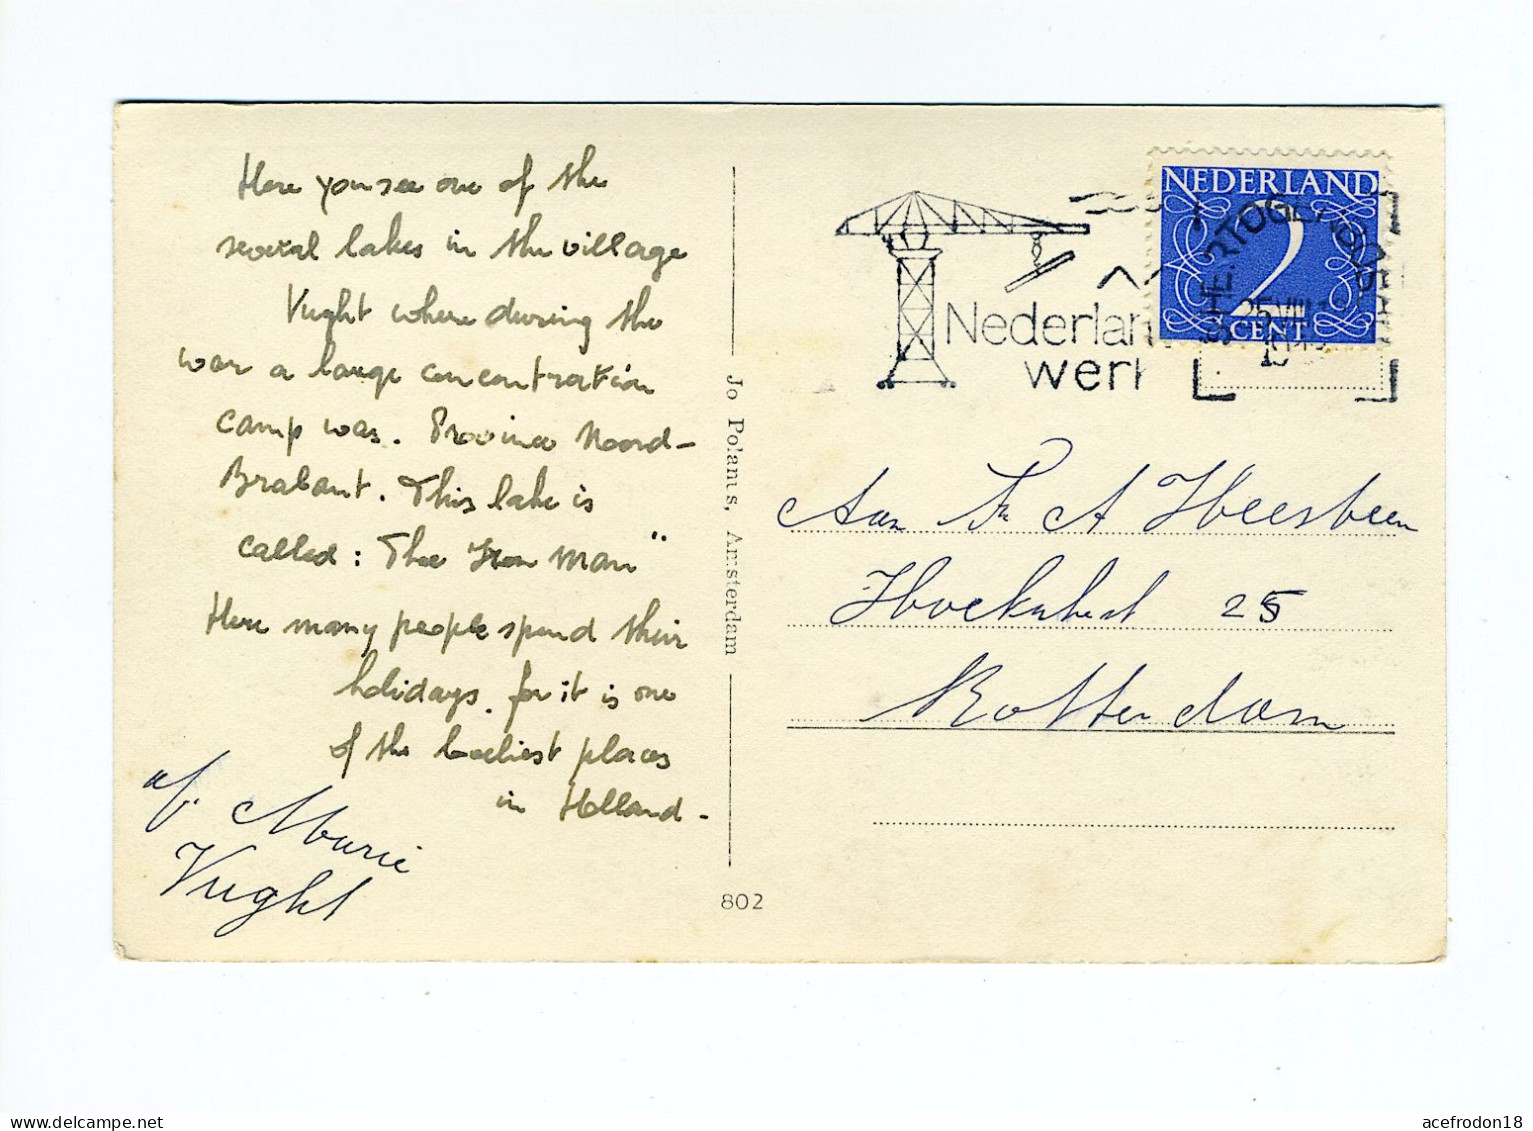 Here you see one of the
several lakes in the village
Vught where during the
war a large concentration
camp was. Province Noord-
Brabant. This lake is
called: The Iron Man"
Here many people spend their
holidays. for it is one
of the loveliest places
in Holland.
af. Marie
Vught
Jo Polanus, Amsterdam
802
Nederlan
werk
NEDERLAND
2
CENT
25 VIII
Aan Fr A Heesbeen
25
Rotterdam
acefrodon18